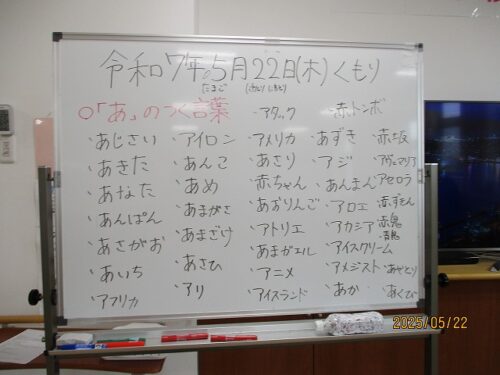 令和7年5月22日(木)くもり
○「あ」のつく言葉
・アタック
・赤トンボ
・あじさい
・あきた
・あなた
・あんぱん
・あさがお
・あいち
・アフリカ
・アイロン
・あんこ
・あめ
・あまがさ
・あまざけ
・あさひ
・アリ
・アメリカ
・あさり
・赤ちゃん
・あおりんご
・アトリエ
・あまガエル
・アニメ
・アイスランド
・あずき
・アジ
・あんまん
・アロエ
・アカシア
・アイスクリーム
・アメジスト
・あか
・赤坂
・アヴェマリア
・アセロラ
・赤ずきん
・赤鬼
・青鬼
・あやとり
・あくび
2025/05/22